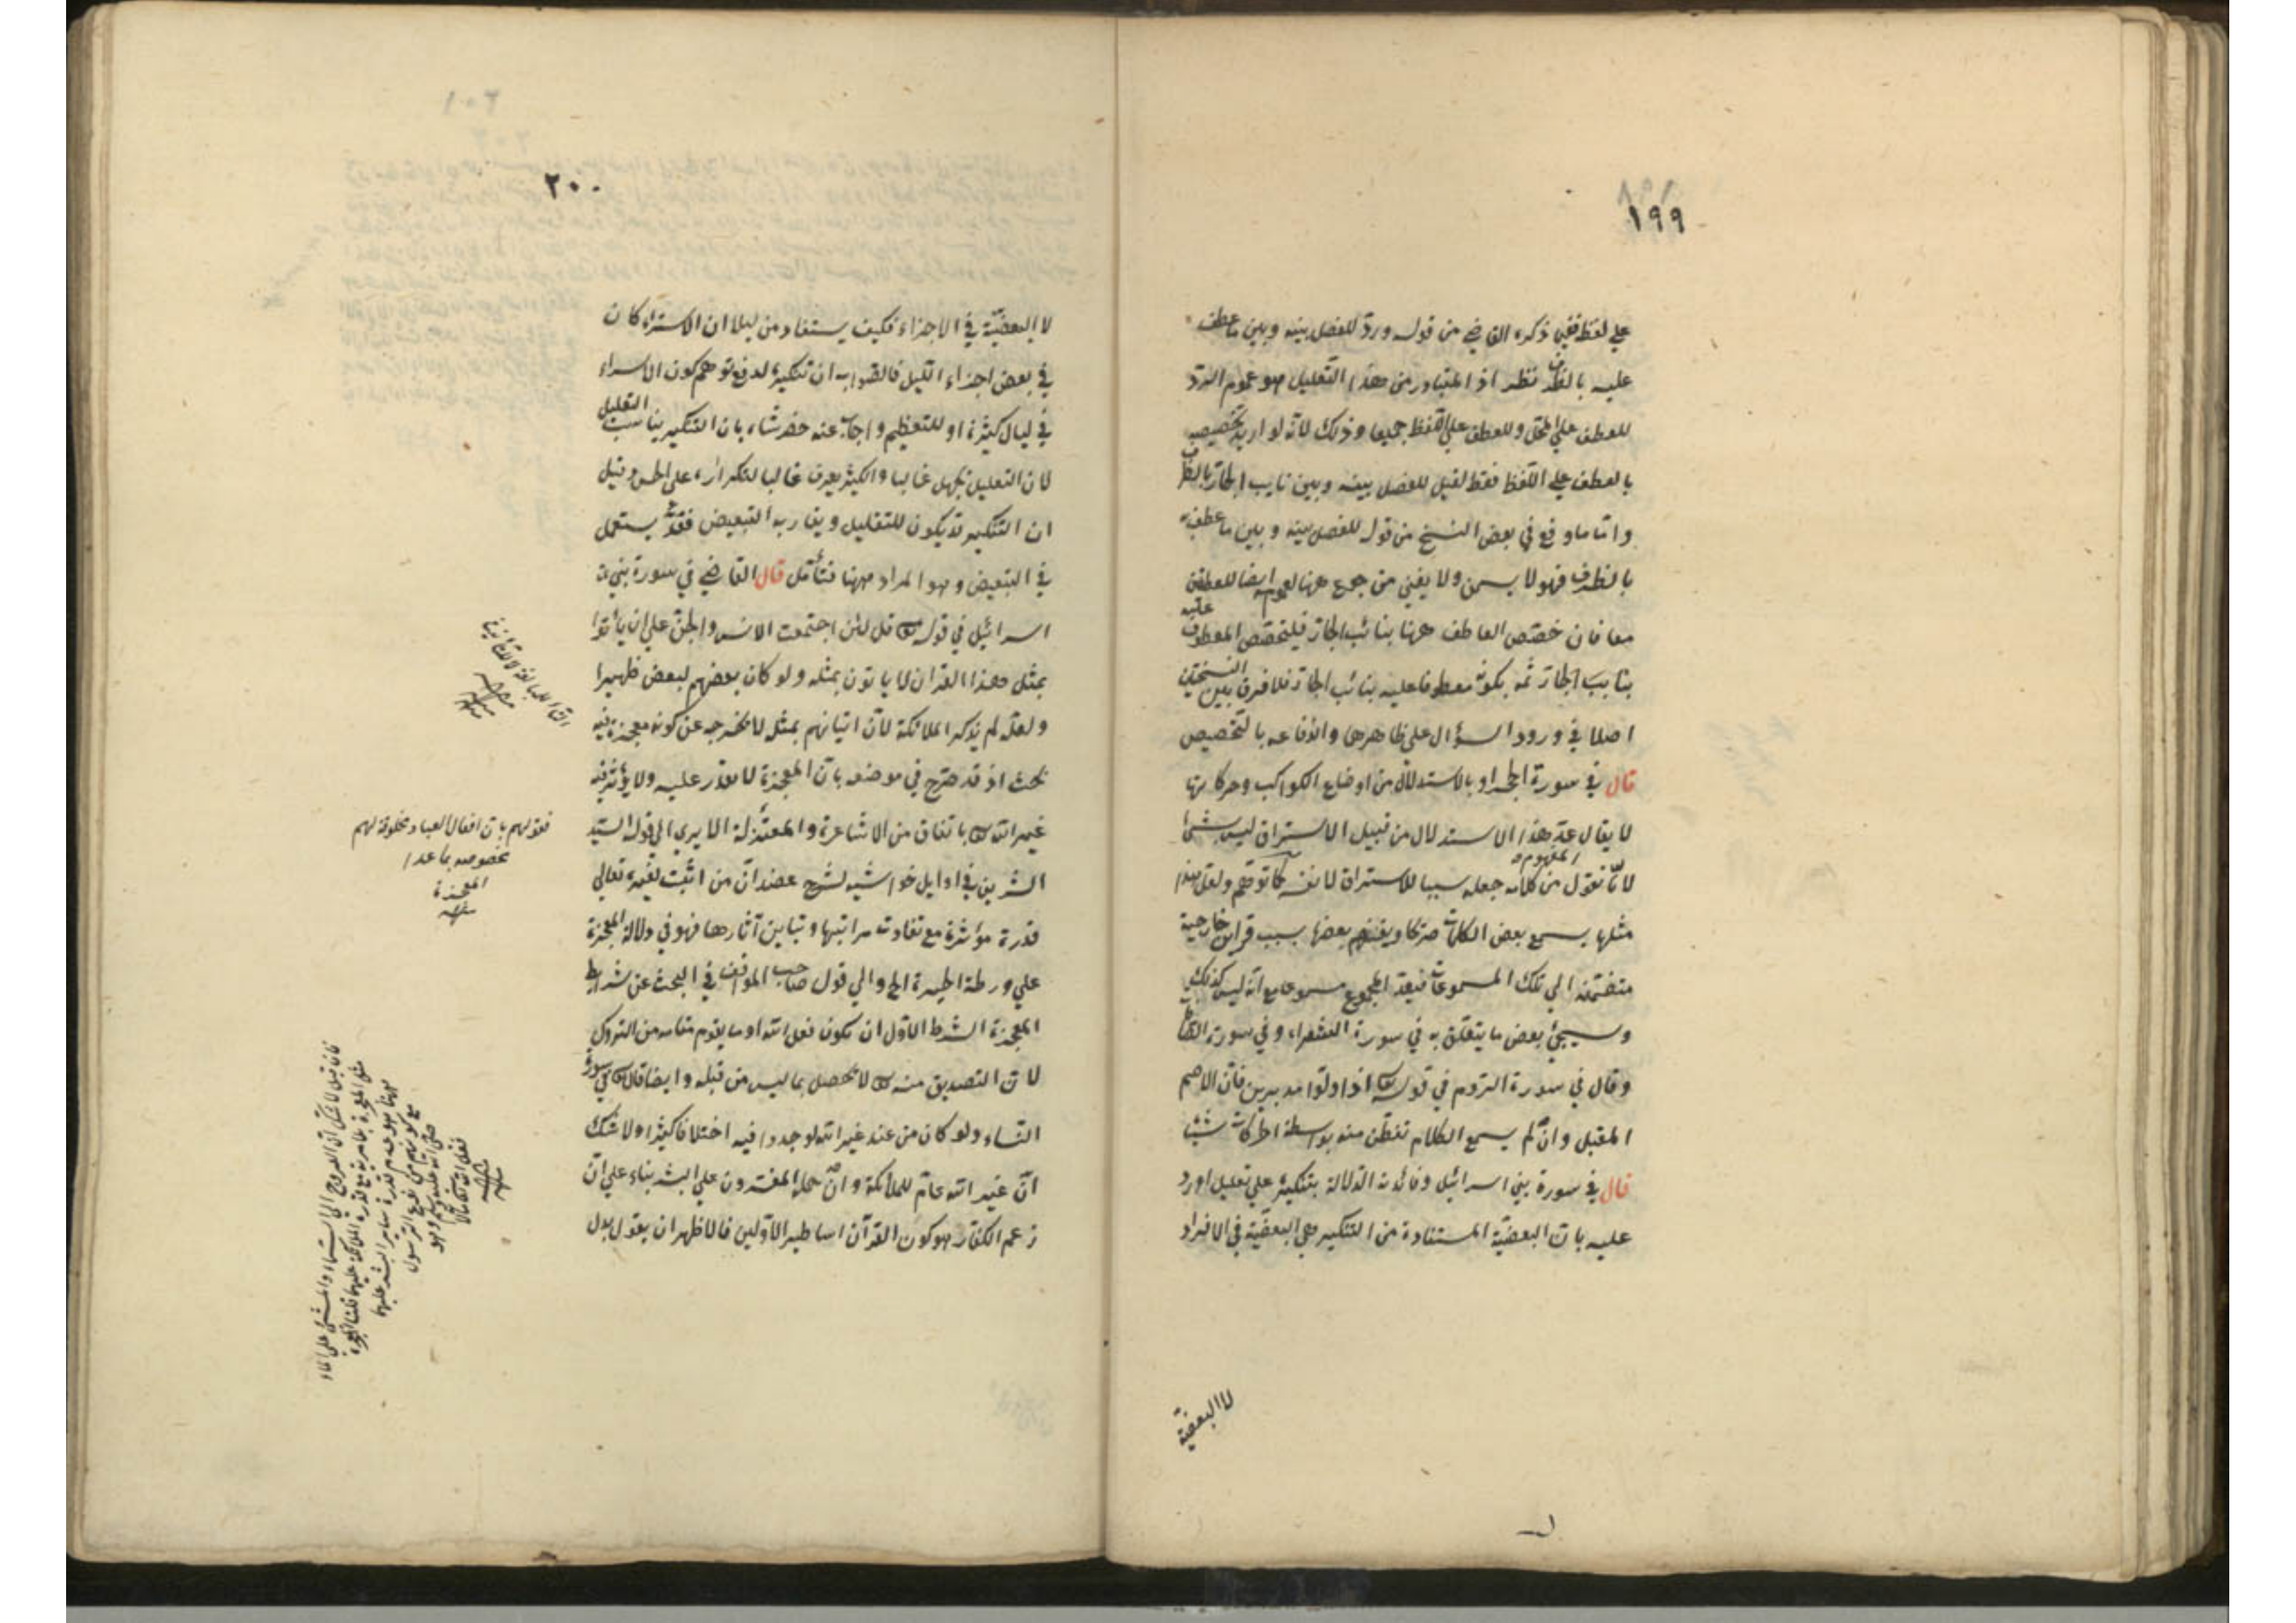 ١٩٩
على لفظ ففي ذكره القاضي من قوله وردّ للفصل بينه وبين ما عطف
عليه بالظرف نظر اذ المتبادر من هذا التعليل هو عموم الردّ
للعطف على المحلّ وللعطف على اللفظ جميعا وذلك لانّه لو اريد تخصيصه
بالعطف على اللفظ فقط لقيل للفصل بينه وبين نايب الجارّ بالظرف
وامّا ما وقع في بعض النسخ من قوله للفصل بينه وبين ما عطفه
بالظرف فهو لا يسمن ولا يغني من جوع ههنا لعمومه ايضا للعطفين
معا فان خصّص العاطف ههنا بنائب الجارّ فليتخصّص المعطوف عليه
بنايب الجارّ ثمه بكونه معطوفا عليه بنائب الجارّ فلا فرق بين النسختين
اصلا في ورود السؤال على ظاهرها واندفاعه بالتخصيص
قال في سورة الحجر او بالاستدلال من اوضاع الكواكب وحركاتها
لا يقال عدّ هذا الاستدلال من قبيل الاستراق ليس بشئ
لانّا نقول المفهوم من كلامه جعله سببا للاستراق لا نفسه كما توهّم ولعلّ هذا
مثلها يسمع بعض الكلمات صرّكا ويفهم بعضها بسبب قراين خارجية
متضمّنة الى تلك المسموعات فيعدّ المجموع مسموعا مع انّه ليس كذلك
وسيجئ بعض ما يتعلّق به في سورة الشعراء وفي سورة الصافات
وقال في سورة الروم في قوله تع اذا ولّوا مدبرين فانّ الاصم
المقبل وان لم يسمع الكلام تفطّن منه بواسطة الحركات شيئا
قال في سورة بني اسرائيل وفائدته الدلالة بتنكيره على تقليل اورد
عليه بانّ البعضيّة المستفادة من التنكير هي البعضيّة في الافراد
لا البعضيّة
٢٠٠
لا البعضيّة في الاجزاء فكيف يستفاد من ليلا ان الاسراء كان
في بعض اجزاء الليل فالصواب ان تنكيره لدفع توهّم كون الاسراء
في ليال كثيرة او للتعظيم واجاب عنه خضر شاه بان التنكير يناسب التقليل
لان التقليل يجهل غالبا والكثير يعرف غالبا لتكراره على الحس وقيل
ان التنكير قد يكون للتقليل ويقاربه التبعيض فقد يستعمل
في التبعيض وهو المراد ههنا فتأمّل قال القاضي في سورة بني
اسرائيل في قوله تع قل لئن اجتمعت الانس والجنّ على ان يأتوا
بمثل هذا القران لا ياتون بمثله ولو كان بعضهم لبعض ظهيرا
ولعلّه لم يذكر الملائكة لانّ اتيانهم بمثله لا يخرجه عن كونه معجزة فيه
بحث اذ قد صرّح في موضعه بانّ المعجزة لا يقدر عليه ولا يؤثّر فيه
غير الله تع باتفاق من الاشاعرة والمعتزلة الا يرى الى قول السيّد
الشريف في اوايل حواشيه لشرح عضد انّ من اثبت لغيره تعالى
قدرة مؤثرة مع تفاوت مراتبها وتباين آثارها فهو في دلالة المعجزة
على ورطة الحيرة الخ والى قول صاحب المواقف في البحث عن شرايط
المعجزة الشرط الاوّل ان يكون فعل الله او ما يقوم مقامه من التروك
لانّ التصديق منه تع لا يحصل بما ليس من قبله وايضا قال تع في سورة
النساء ولو كان من عند غير الله لوجدوا فيه اختلافا كثيرا ولا شك
انّ غير الله عامّ للملائكة وان حمله المفسّرون على البشر بناء على انّ
زعم الكفّار هو كون القرآن اساطير الاوّلين فالاظهر ان يقول بدل
فقولهم بانّ افعال العباد مخلوقة لهم
مخصوصة بما عدا
المعجزة
منه
فان قيل لا شك ان العروج الى السماء والمشي على الماء